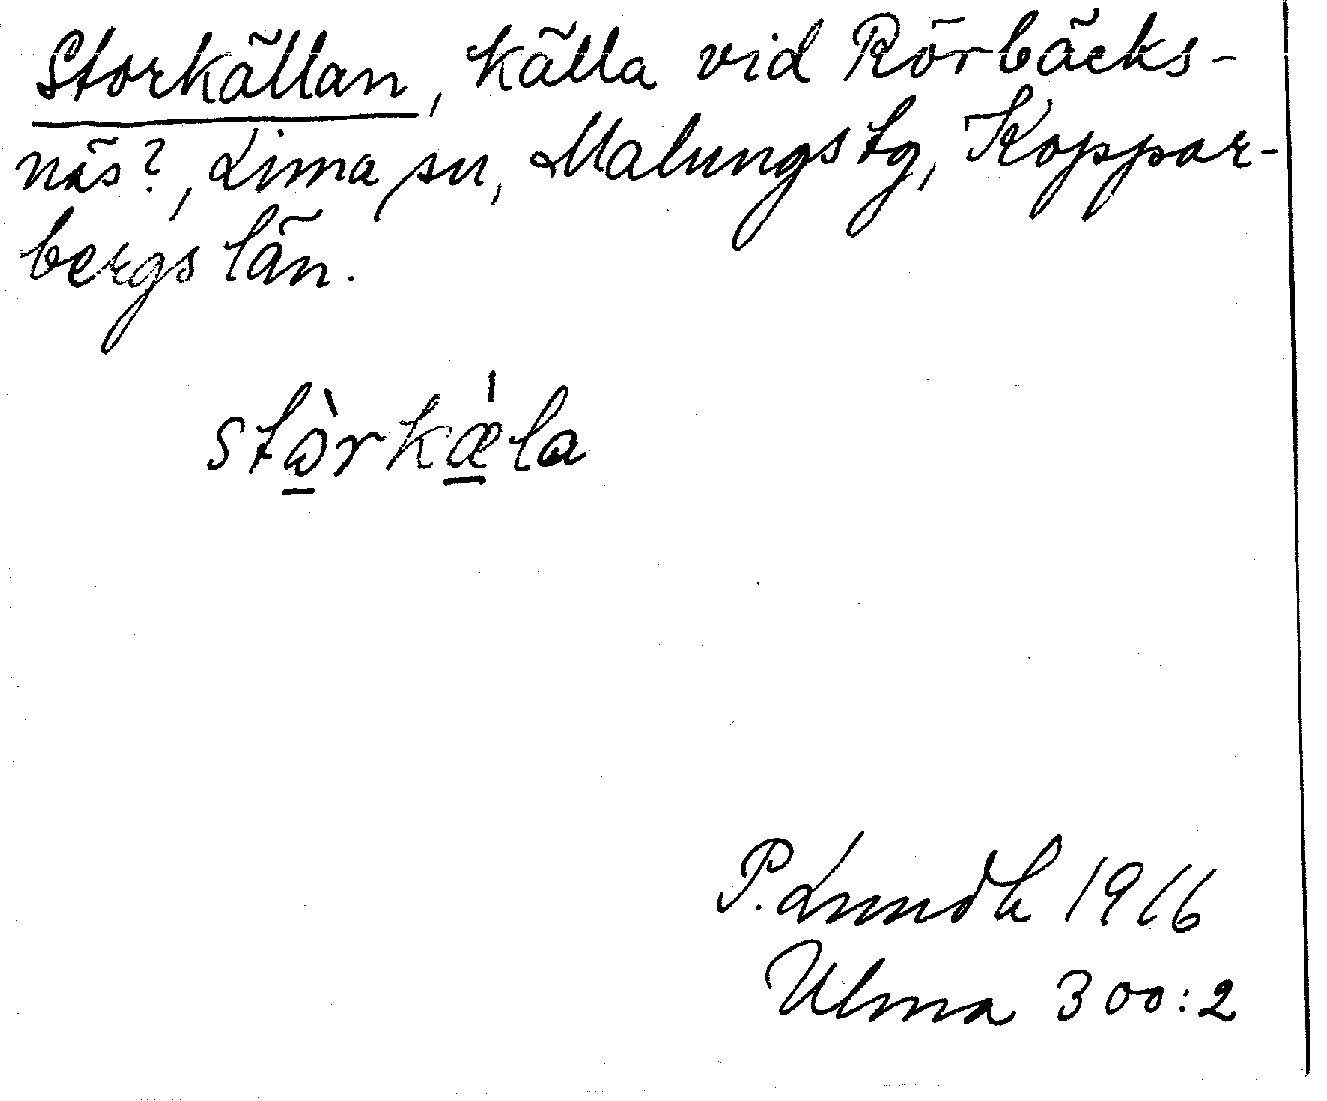 Storkällan, källa vid Rörbäcks-
näs?, Lima sn, Malungs tg, Koppar-
bergs län.
stɷ̠̀rkæ̠̍la
P. Lundh 1916
Ulma 300:2